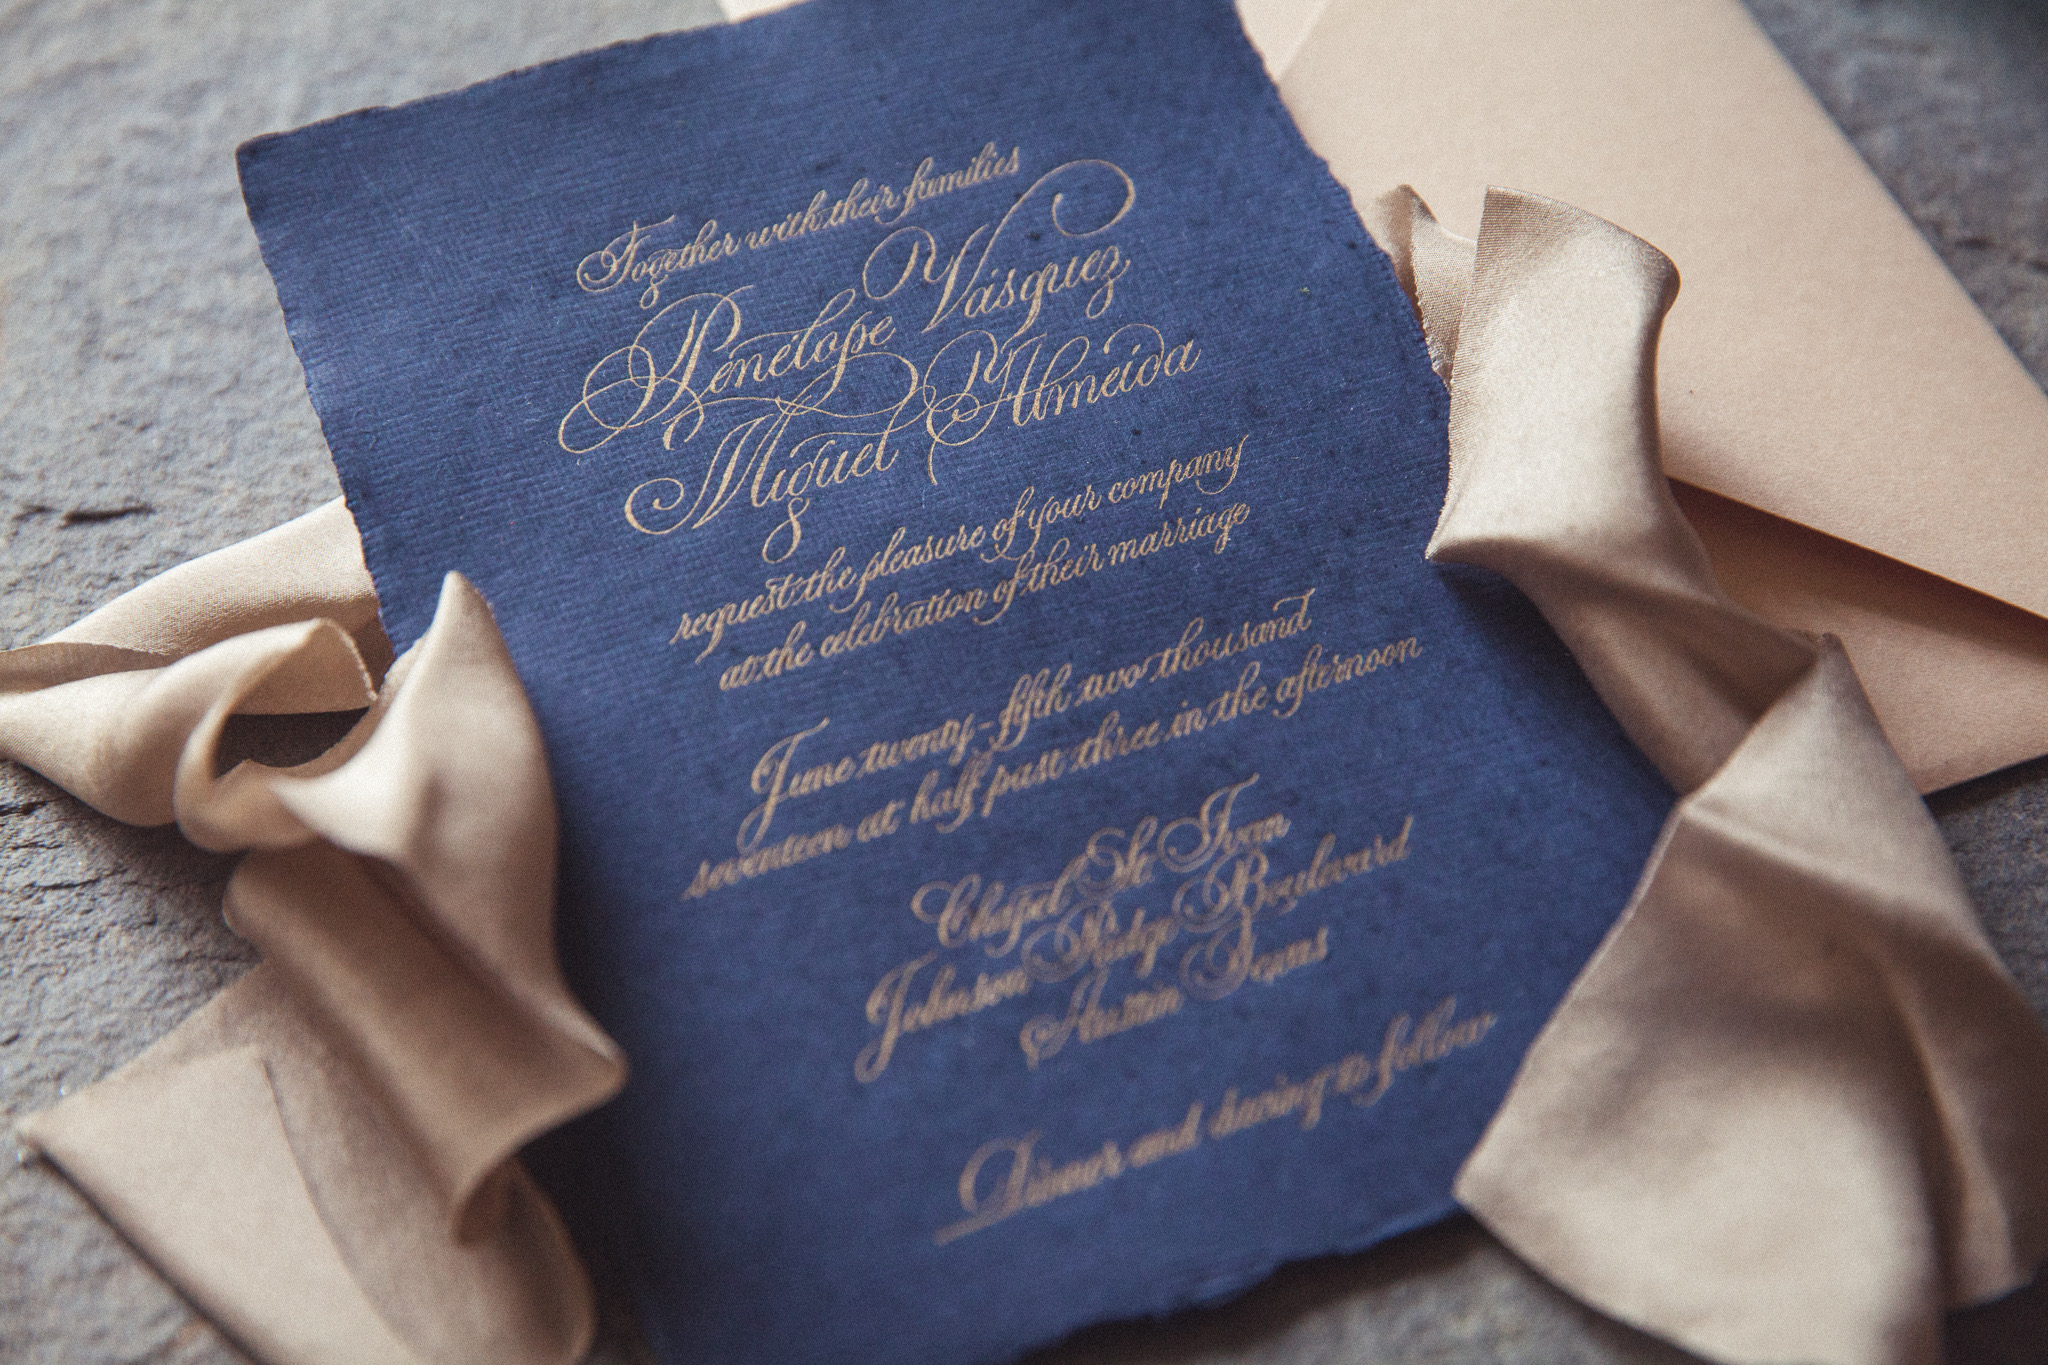 Together with their families
Pénélope Vásquez
Miguel Almeida
request the pleasure of your company
at the celebration of their marriage
June twenty-fifth two thousand
seventeen at half past three in the afternoon
Chapel St. Ivan
Johnson Ridge Boulevard
Austin Texas
Dinner and dancing to follow